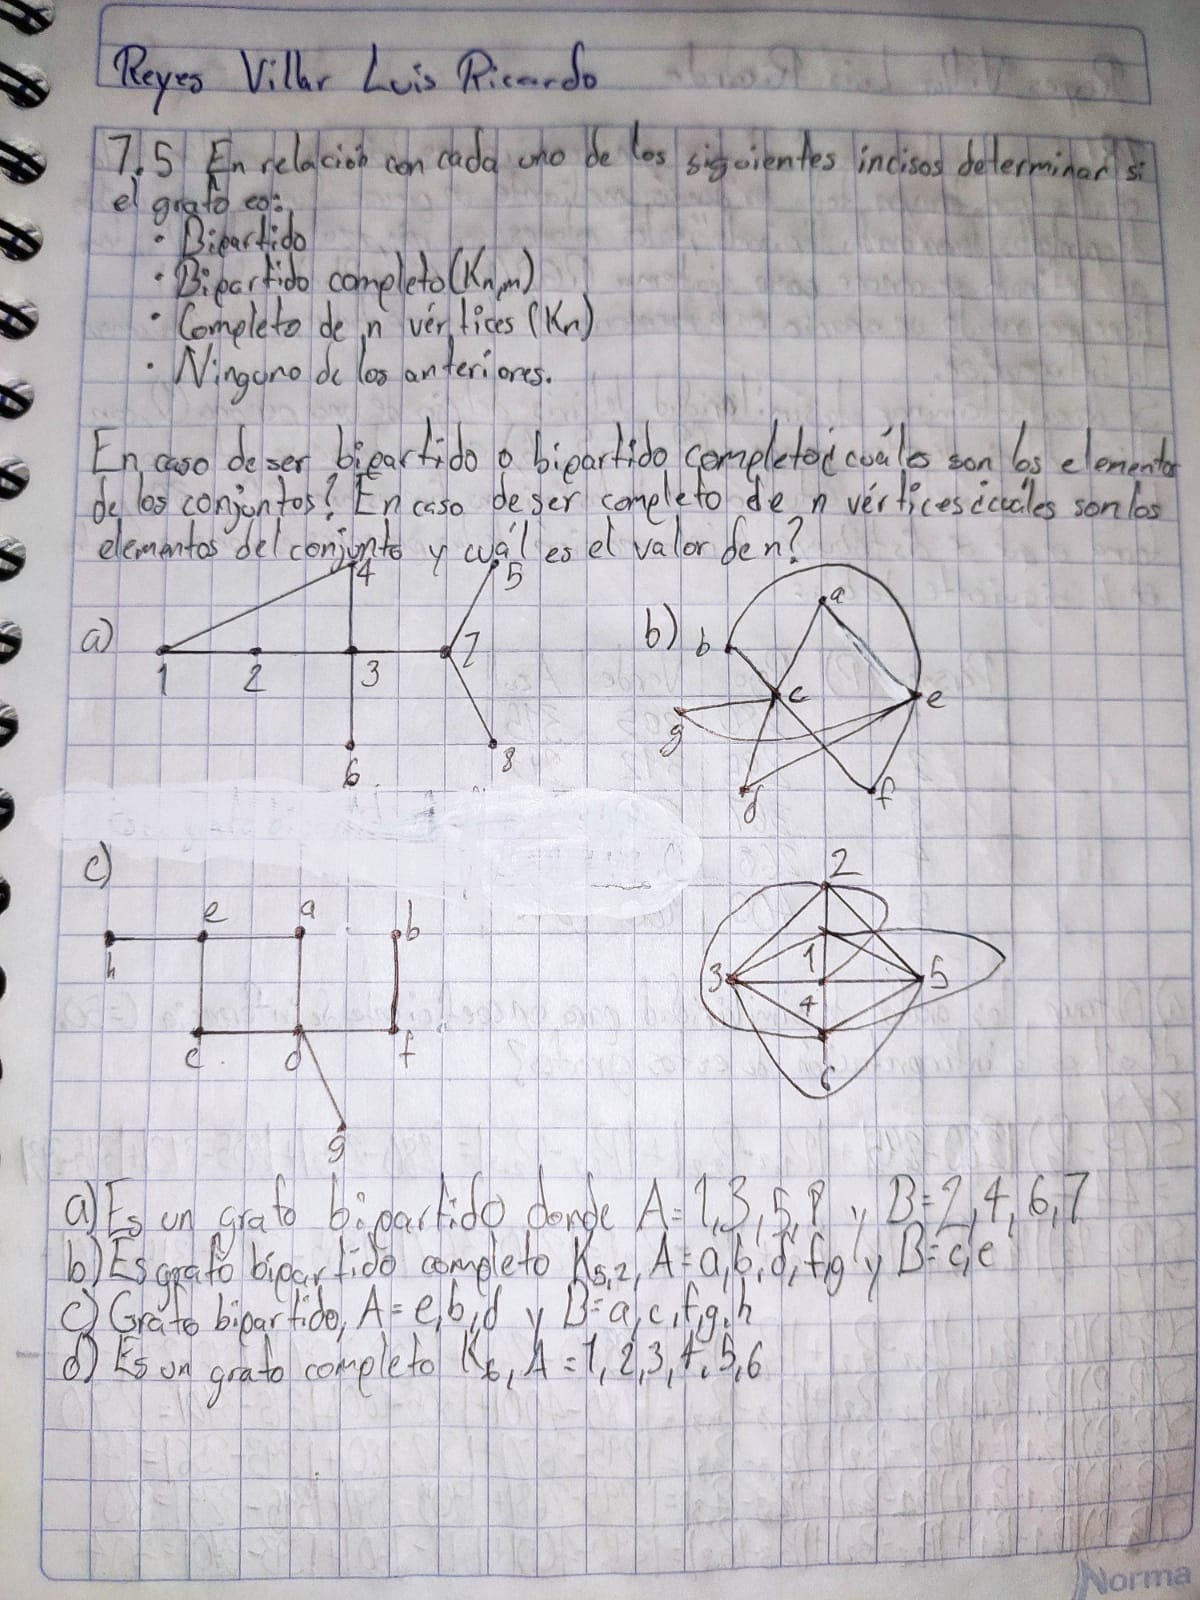 Reyes Villar Luis Ricardo
7.5 En relación con cada uno de los siguientes incisos determinar si
el grafo es:
· Bipartido
· Bipartido completo (Kn,m)
· Completo de n vértices (Kn)
· Ninguno de los anteriores.
En caso de ser bipartido o bipartido completo ¿cuáles son los elementos
de los conjuntos? En caso de ser completo de n vértices ¿cuáles son los
elementos del conjunto y cuál es el valor de n?
a)
4
5
1
2
3
7
6
8
b)
a
b
c
e
g
d
f
c)
e
a
b
h
c
d
f
g
2
1
3
5
4
6
a) Es un grafo bipartido donde A=1,3,5,8 y B=2,4,6,7
b) Es grafo bipartido completo K5,2, A=a,b,d,f,g y B=c,e
c) Grafo bipartido, A=e,b,d y B=a,c,f,g,h
d) Es un grafo completo K6, A=1,2,3,4,5,6
Norma